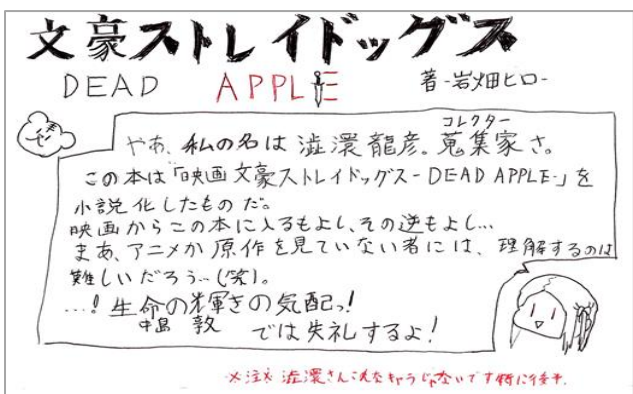 文豪ストレイドッグス
DEAD APPLE 著-岩畑ヒロ-
やあ、私の名は 澁澤龍彦。蒐集家(コレクター)さ。
この本は「映画 文豪ストレイドッグス-DEAD APPLE-」を
小説化したものだ。
映画からこの本に入るもよし、その逆もよし…
まあ、アニメか原作を見ていない者には、理解するのは
難しいだろう…(笑)。
…!生命の輝きの気配っ!
中島 敦 では失礼するよ!
※注※ 澁澤さんこんなキャラじゃないです特に後半。